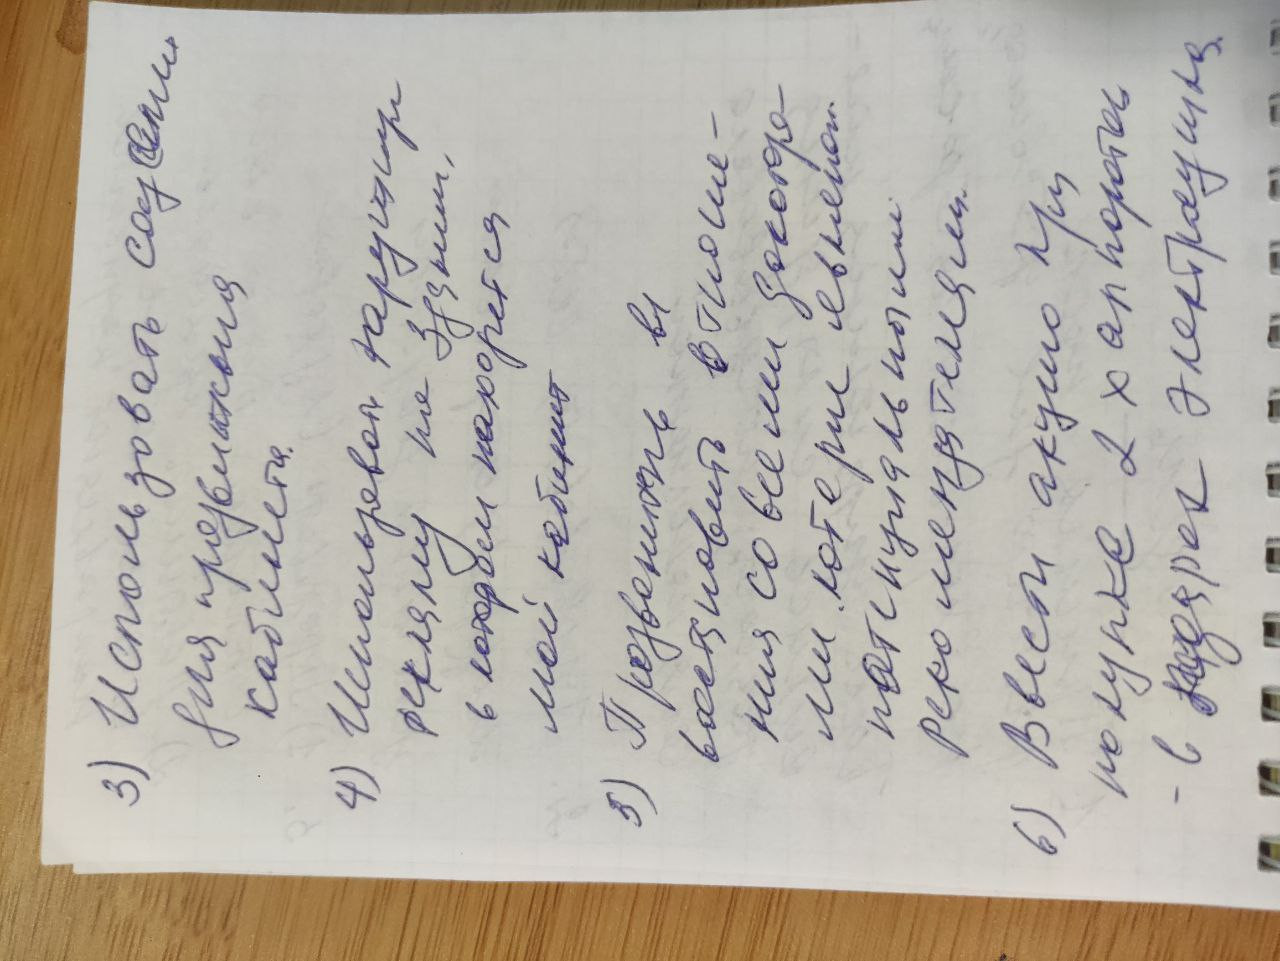 3) Использовать соц сети
для продвижения
кабинета.
4) Использовать наружную
рекламу на здании,
в котором находится
мой кабинет
5) Прозвонить
востановить в тноше-
ния со всеми докторо-
ми которые явл
потенциальными
рекомендателями.
6) Ввести акцию при
покупке 2х аппаратов
- в подарок электроушка.